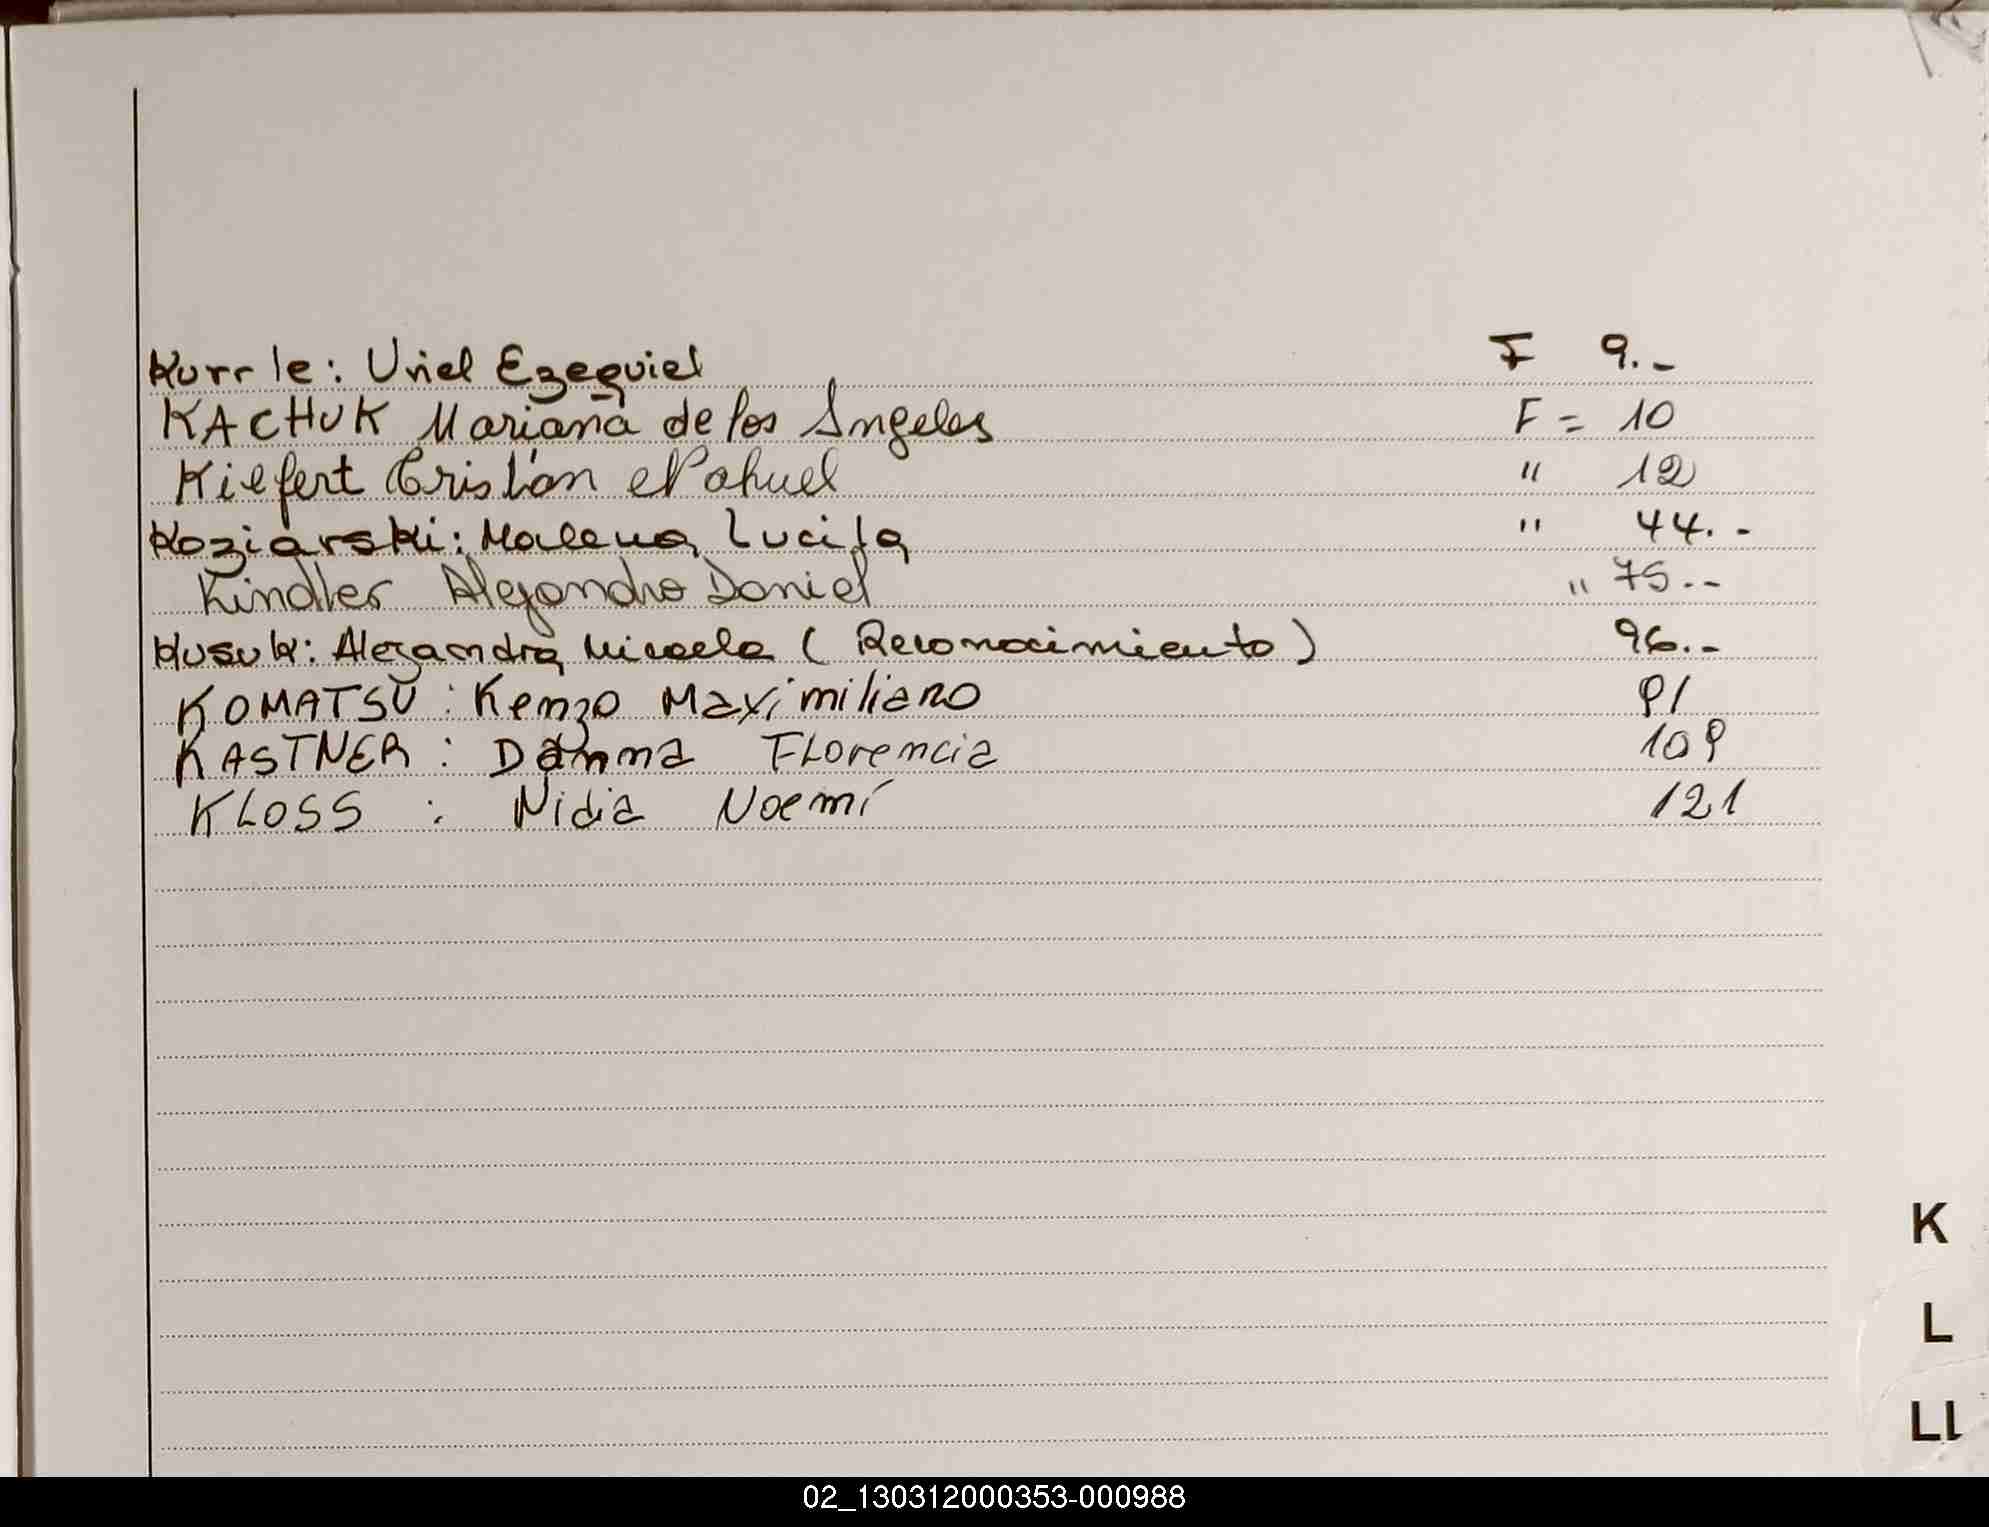 Kurrle: Uriel Ezequiel F 9.-
KACHUK Mariana de los Angeles F = 10
Kiefert Cristian Nahuel " 12
Koziarski: Malena Lucila " 44.-
Kindler Alejandro Daniel " 75.-
Kusuk: Alejandra Micaela (Reconocimiento) 96.-
KOMATSU : Kenzo Maximiliano 91
KASTNER : Danna Florencia 109
KLOSS : Nidia Noemí 121
K
L
Ll
02_130312000353-000988